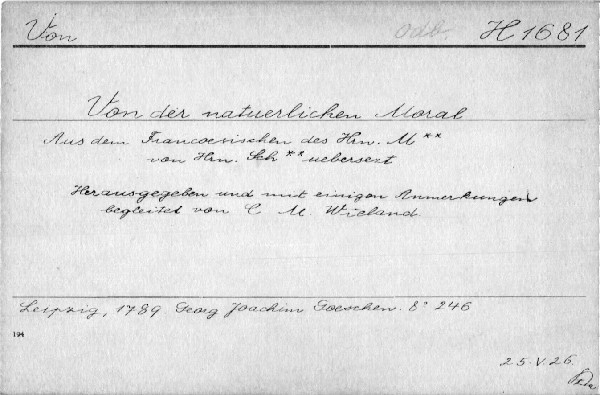 Von odb. H 1681
Von der natuerlichen Moral
Aus dem Francoesischen des Hrn. M**
von Hrn. Sch** uebersezt
Herausgegeben und mit einigen Anmerkungen
begleitet von C M. Wieland.
Leipzig, 1789 Georg Joachim Goeschen. 8° 246
194
25.V.26.